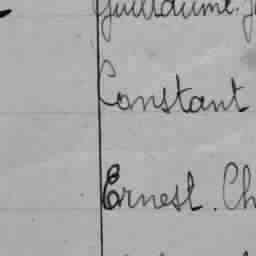 Guillaume. J
Constant
Ernest. Ch